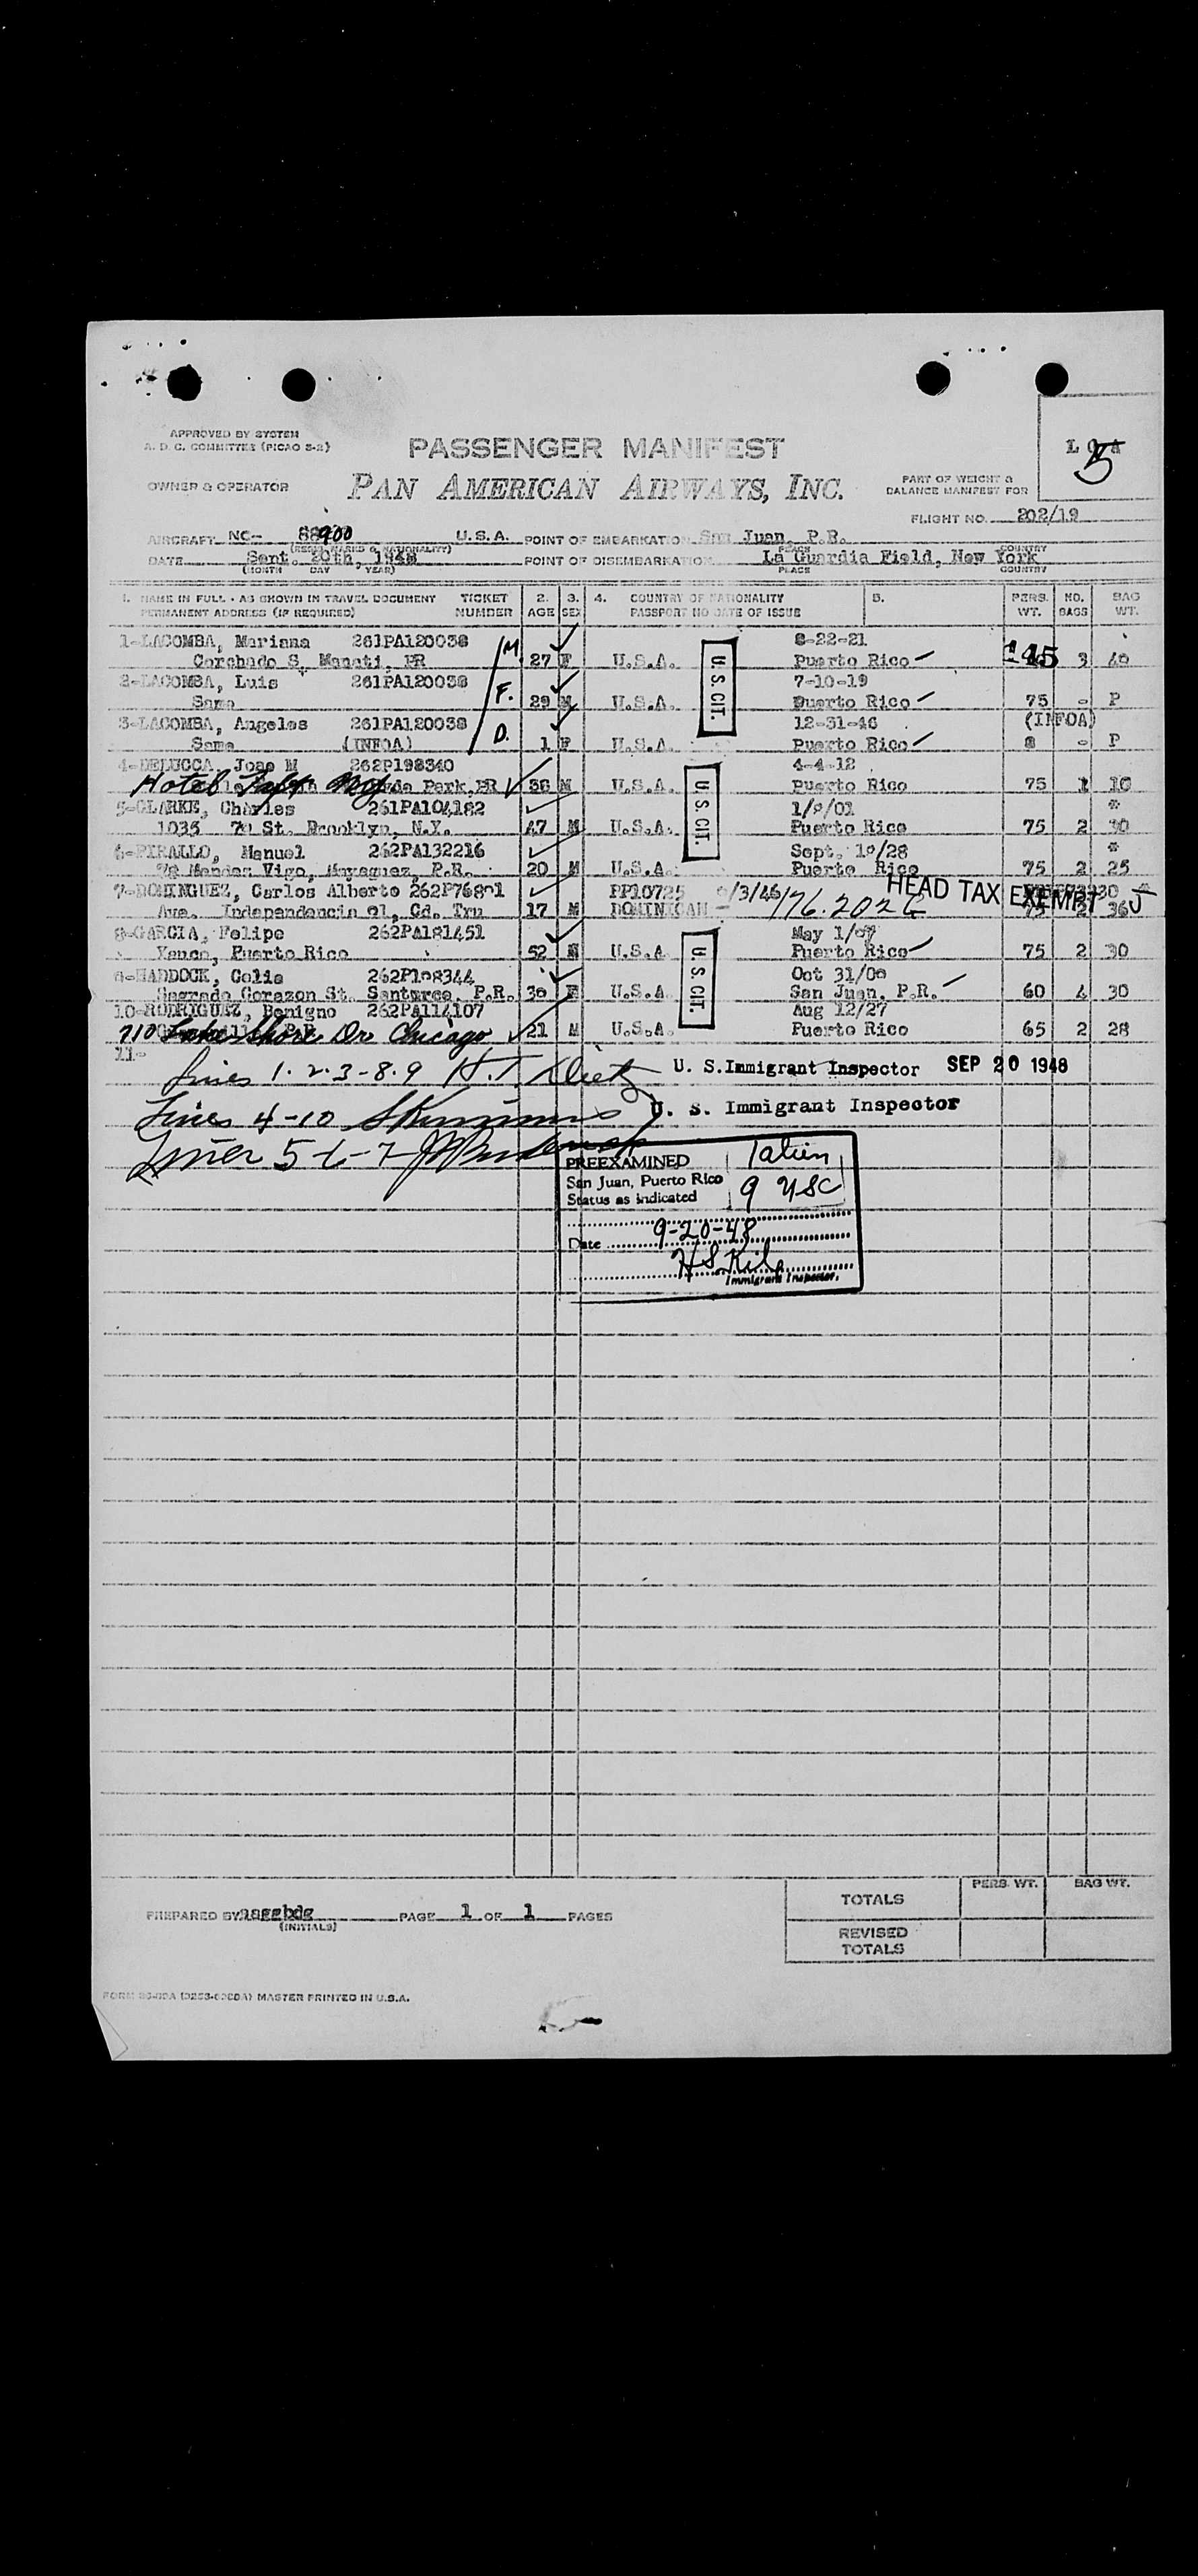 APPROVED BY SYSTEM
A. D. C. COMMITTEE (PICAO S-2)
PASSENGER MANIFEST
L G A
5
OWNER & OPERATOR
PAN AMERICAN AIRWAYS, INC.
PART OF WEIGHT &
BALANCE MANIFEST FOR
FLIGHT NO. 202/19
AIRCRAFT NC- 88900 U.S.A. POINT OF EMBARKATION San Juan, P.R.
DATE Sept. 20th, 1948 POINT OF DISEMBARKATION La Guardia Field, New York
(MONTH DAY YEAR) PLACE COUNTRY
1. NAME IN FULL - AS SHOWN IN TRAVEL DOCUMENT TICKET 2. 3. 4. COUNTRY OF NATIONALITY 5. PERS. NO. BAG
PERMANENT ADDRESS (IF REQUIRED) NUMBER AGE SEX PASSPORT NO DATE OF ISSUE WT. BAGS WT.
1-LACOMBA, Mariana 261PA120038 M 8-22-21
Corchado S, Manati, PR 27 F U.S.A. Puerto Rico 145 3 40
2-LACOMBA, Luis 261PA120038 F. 7-10-19
Same 29 M U.S.A. Puerto Rico 75 - P
3-LACOMBA, Angeles 261PA120038 D. 12-31-46 (INFOA)
Same (INFOA) 1 F U.S.A. Puerto Rico - P
U.S. CIT.
4-DELUCCA, Joae M 262P198340 4-4-12
Hotel Taft Park PR 36 M U.S.A. Puerto Rico 75 1 10
5-CLARKE, Charles 261PA104182 *
St. Brooklyn, N.Y. 47 M U.S.A. Puerto Rico 75 2 30
6-PIRALLO, Manuel 262PA132216 Sept. *
Mendez Vigo, Mayaguez, P.R. 20 M U.S.A. Puerto Rico 75 2 25
U.S. CIT.
7-DOMINGUEZ, Carlos Alberto PP10725 HEAD TAX EXEMPT
Ave. Independencia 91, Cd. Tru 17 M DOMINICAN 75 2 36
8-GARCIA, Felipe 262PA181451 May
Yauco, Puerto Rico 52 M U.S.A. Puerto Rico 75 2 30
9-HADDOCK, Celia Oct
Sagrado Corazon St. Santurce, P.R. F U.S.A. San Juan, P.R. 60 4 30
10-RODRIGUEZ, Benigno 262PA114107 Aug 12/27
710 Lake Shore Dr Chicago 21 M U.S.A. Puerto Rico 65 2 28
U.S. CIT.
11-
Lines 1-2-3-8-9 H. T. Dietz U. S. Immigrant Inspector SEP 20 1948
Lines 4-10 U. S. Immigrant Inspector
Lines 5-6-7
PREEXAMINED 1 alien
San Juan, Puerto Rico 9 USC
Status as indicated
Date 9-20-48
Immigrant Inspector.
PERS. WT. BAG WT.
TOTALS
PREPARED BY PAGE 1 OF 1 PAGES
(INITIALS)
REVISED
TOTALS
MASTER PRINTED IN U.S.A.